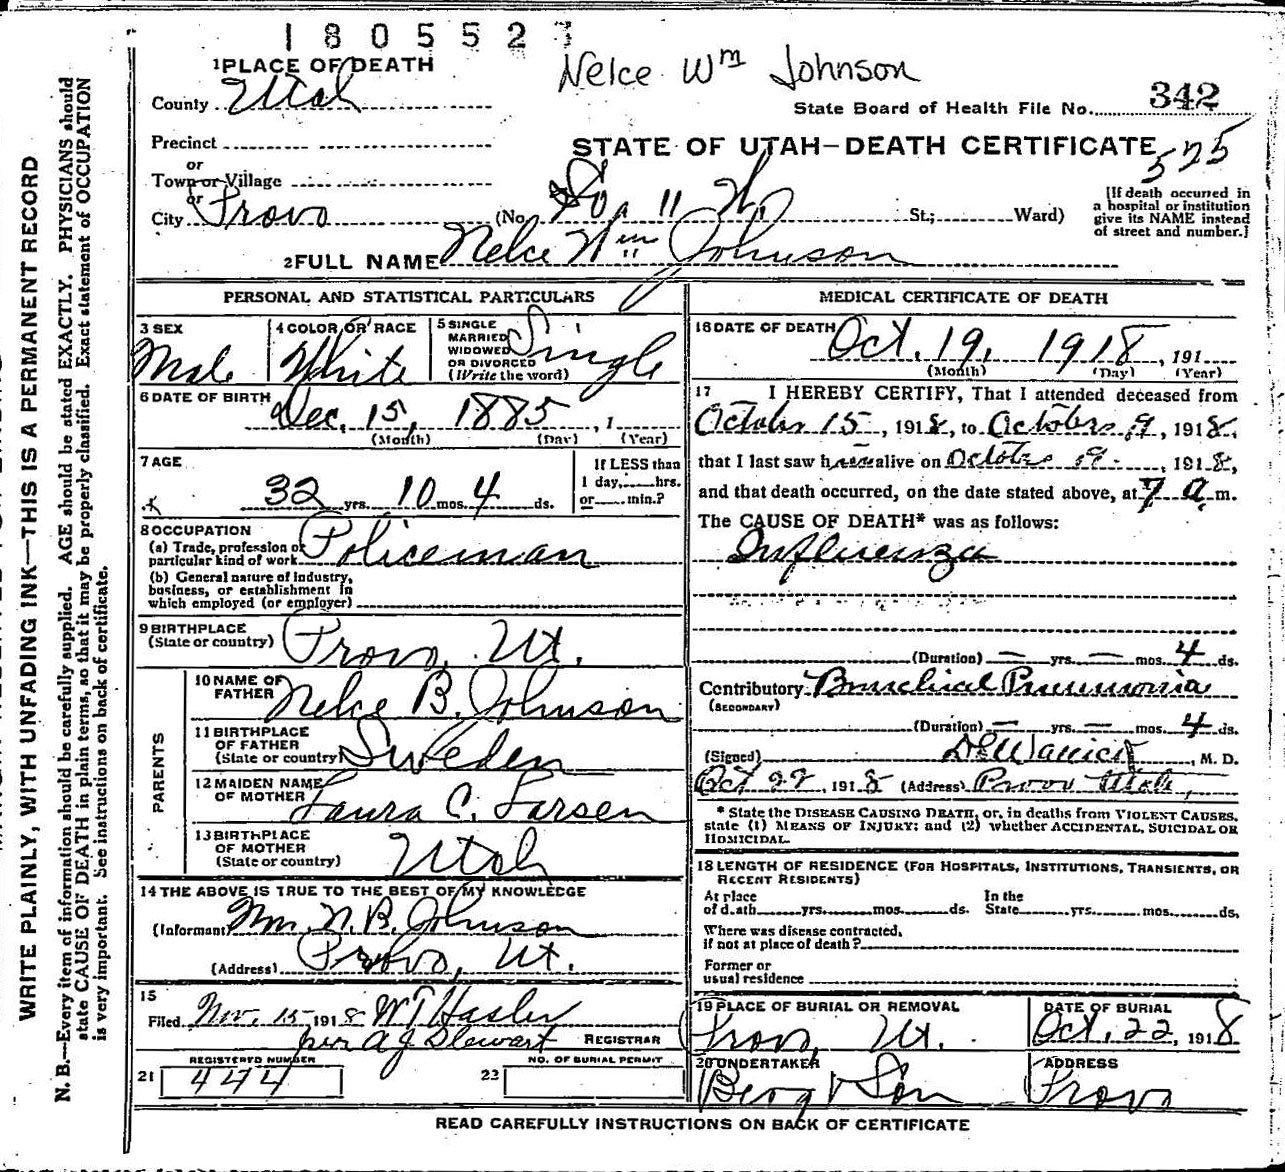 1805527
Nelce Wm Johnson
1 PLACE OF DEATH
County Utah
State Board of Health File No. 342
Precinct
STATE OF UTAH—DEATH CERTIFICATE
525
or
Town or Village
or
City Provo (No. St.; Ward)
[If death occurred in a hospital or institution give its NAME instead of street and number.]
2 FULL NAME Nelce Wm Johnson
PERSONAL AND STATISTICAL PARTICULARS
3 SEX Male
4 COLOR OR RACE White
5 SINGLE MARRIED WIDOWED OR DIVORCED (Write the word) Single
6 DATE OF BIRTH Dec. 15, 1885, 1
(Month) (Day) (Year)
7 AGE 32 yrs. 10 mos. 4 ds.
If LESS than 1 day, hrs. or min.?
8 OCCUPATION
(a) Trade, profession or particular kind of work Policeman
(b) General nature of industry, business, or establishment in which employed (or employer)
9 BIRTHPLACE (State or country) Provo, Ut.
PARENTS
10 NAME OF FATHER Nelce B. Johnson
11 BIRTHPLACE OF FATHER (State or country) Sweden
12 MAIDEN NAME OF MOTHER Laura C. Larsen
13 BIRTHPLACE OF MOTHER (State or country) Utah
14 THE ABOVE IS TRUE TO THE BEST OF MY KNOWLEDGE
(Informant) N. B. Johnson
(Address) Provo, Ut.
15
Filed Nov. 15 1918 W T Hasler
per A J Stewart REGISTRAR
REGISTERED NUMBER
21 444
NO. OF BURIAL PERMIT
22
MEDICAL CERTIFICATE OF DEATH
16 DATE OF DEATH Oct. 19, 1918, 191
(Month) (Day) (Year)
17 I HEREBY CERTIFY, That I attended deceased from
October 15, 1918, to October 19, 1918,
that I last saw h alive on October 19, 1918,
and that death occurred, on the date stated above, at 7 a. m.
The CAUSE OF DEATH* was as follows:
Influenza
(Duration) — yrs. — mos. 4 ds.
Contributory Bronchical Pneumonia
(SECONDARY)
(Duration) — yrs. — mos. 4 ds.
(Signed) M. D.
Oct 22, 1918 (Address) Provo Utah,
* State the DISEASE CAUSING DEATH, or, in deaths from VIOLENT CAUSES,
state (1) MEANS OF INJURY; and (2) whether ACCIDENTAL, SUICIDAL OR
HOMICIDAL.
18 LENGTH OF RESIDENCE (FOR HOSPITALS, INSTITUTIONS, TRANSIENTS, OR
RECENT RESIDENTS)
At place of death yrs. mos. ds. In the State yrs. mos. ds.
Where was disease contracted,
if not at place of death?
Former or
usual residence
19 PLACE OF BURIAL OR REMOVAL Provo, Ut.
DATE OF BURIAL Oct. 22, 1918
20 UNDERTAKER Berg & Son
ADDRESS Provo
READ CAREFULLY INSTRUCTIONS ON BACK OF CERTIFICATE
WRITE PLAINLY, WITH UNFADING INK—THIS IS A PERMANENT RECORD
N. B.—Every item of information should be carefully supplied. AGE should be stated EXACTLY. PHYSICIANS should
state CAUSE OF DEATH in plain terms, so that it may be properly classified. Exact statement of OCCUPATION
is very important. See instructions on back of certificate.